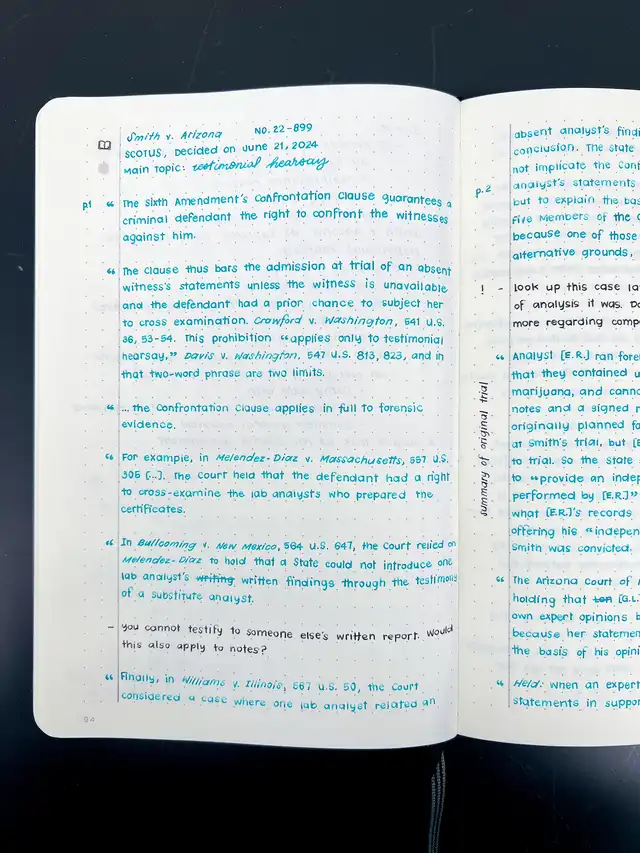 Smith v. Arizona NO. 22-899
SCOTUS, Decided on June 21, 2024
Main Topic: testimonial hearsay
p.1 “ The Sixth Amendment's Confrontation Clause guarantees a
criminal defendant the right to confront the witnesses
against him.
“ The Clause thus bars the admission at trial of an absent
witness's statements unless the witness is unavailable
and the defendant had a prior chance to subject her
to cross examination. Crawford v. Washington, 541 U.S.
36, 53-54. This prohibition “applies only to testimonial
hearsay,” Davis v. Washington, 547 U.S. 813, 823, and in
that two-word phrase are two limits.
“ ... the Confrontation Clause applies in full to forensic
evidence.
“ For example, in Melendez-Diaz v. Massachusetts, 557 U.S.
305 [...]. The Court held that the defendant had a right
to cross-examine the lab analysts who prepared the
certificates.
“ In Bullcoming v. New Mexico, 564 U.S. 647, the Court relied on
Melendez-Diaz to hold that a State could not introduce one
lab analyst's writing written findings through the testimony
of a substitute analyst.
- you cannot testify to someone else's written report. Would
this also apply to notes?
“ Finally, in Williams v. Illinois, 567 U.S. 50, the Court
considered a case where one lab analyst related an
94
absent analyst's
conclusion. The State
not implicate the
p.2 analyst's statements
but to explain the
Five Members of the
because one of those
alternative grounds,
! - look up this case
of analysis it was.
more regarding
“ Analyst [E.R.] ran
that they contained
marijuana, and
notes and a signed
originally planned
at Smith's trial, but
to trial. So the State
to “provide an
performed by [E.R.]”
what [E.R.]'s records
offering his
Smith was convicted.
summary of original trial
“ The Arizona Court of
holding that
own expert opinions
because her
the basis of his
“ Held: When an expert
statements in